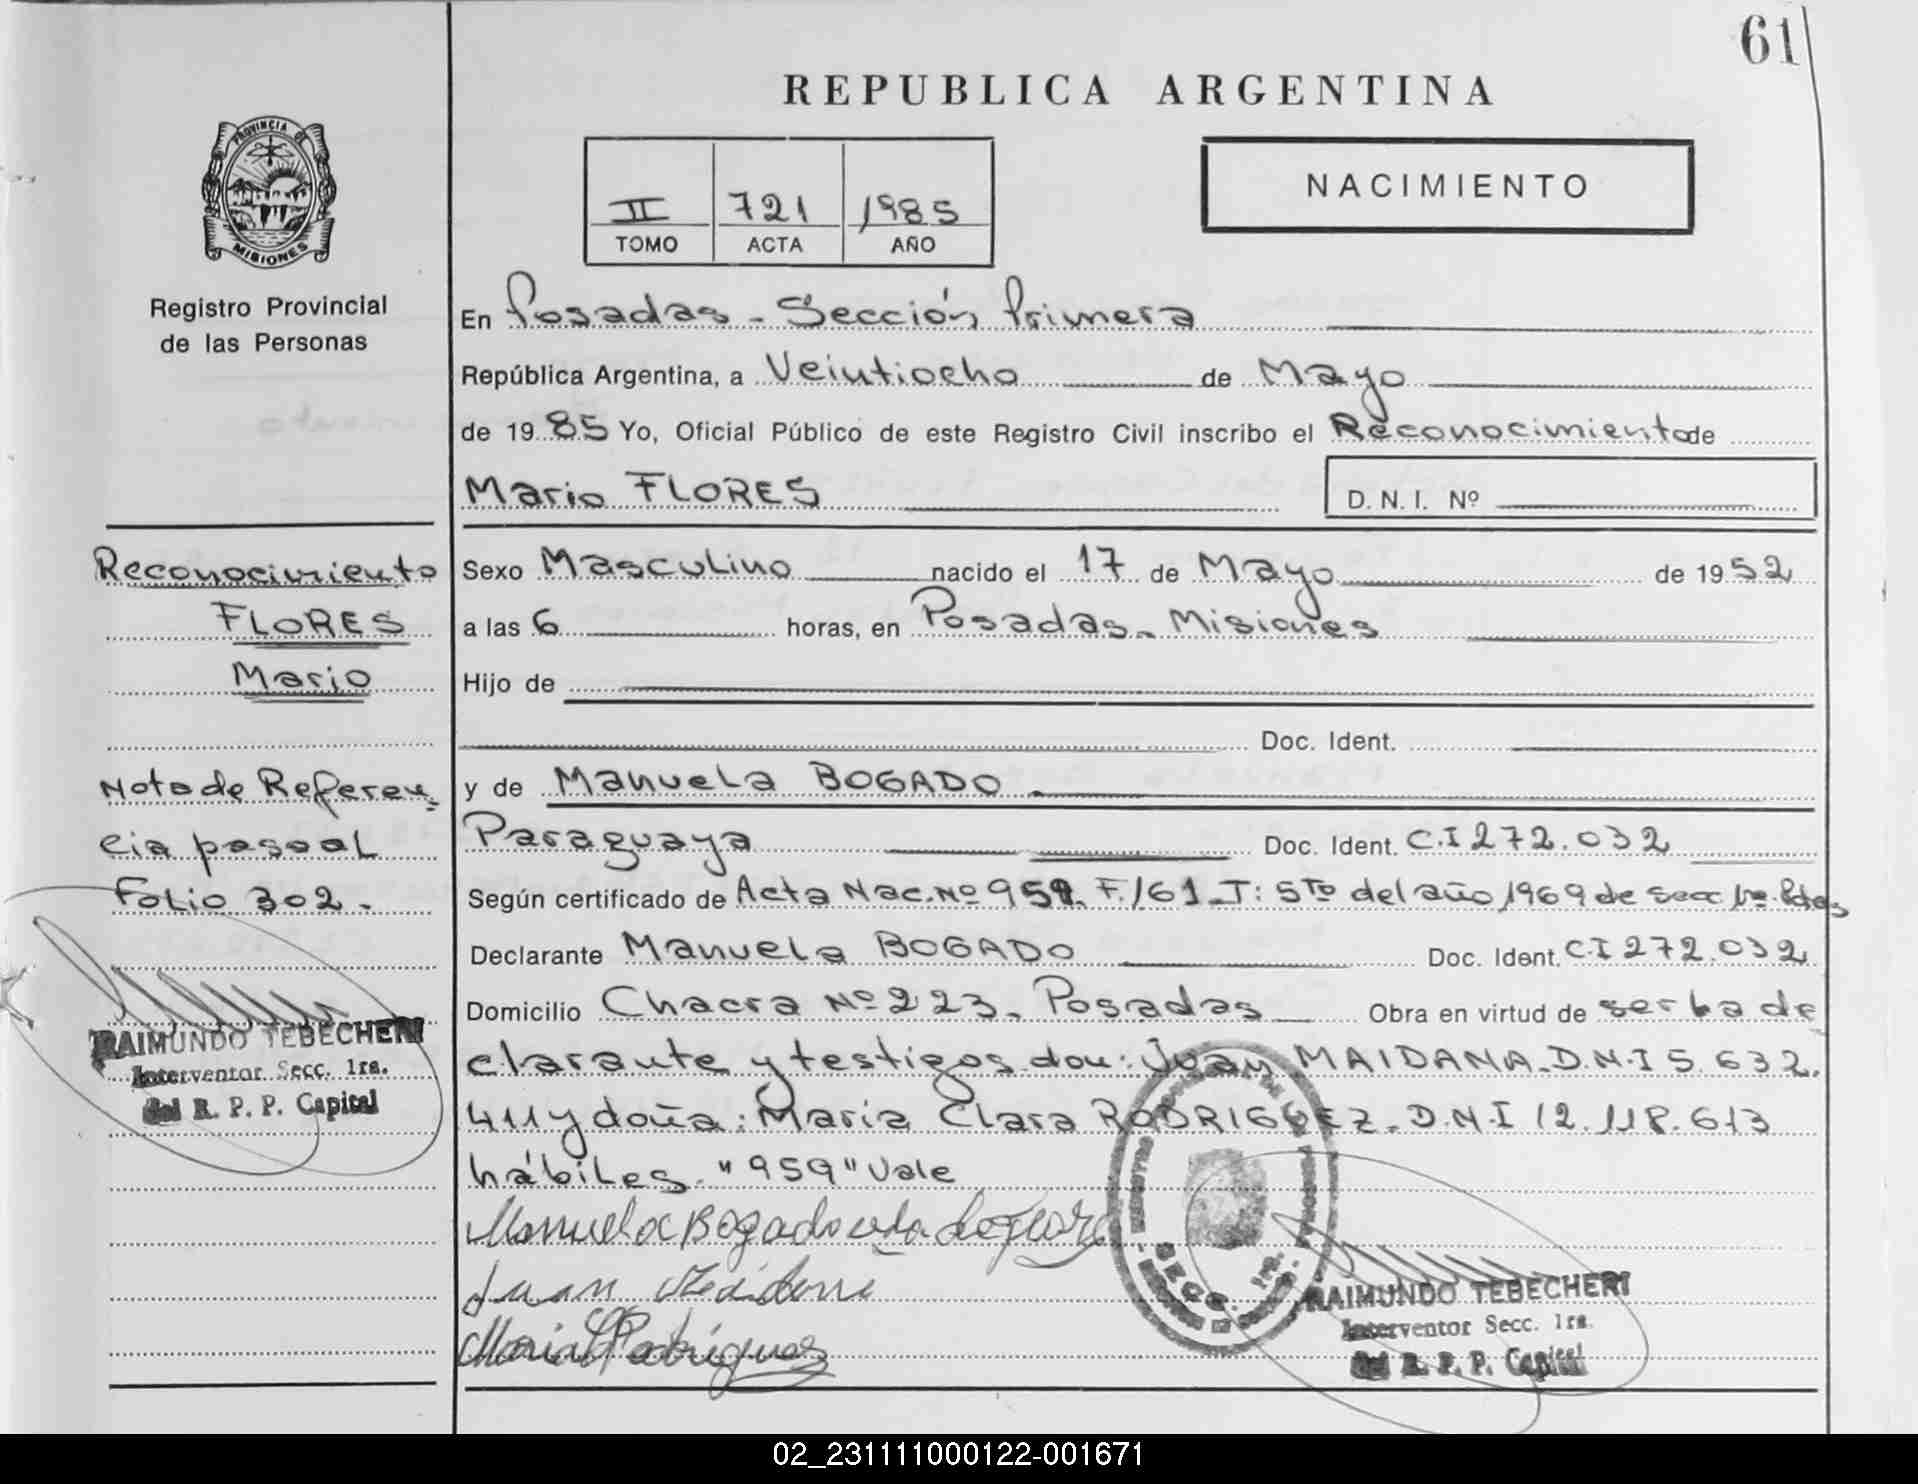 61
REPUBLICA ARGENTINA
PROVINCIA DE
MISIONES
II 721 1985
TOMO ACTA AÑO
NACIMIENTO
Registro Provincial
de las Personas
En Posadas - Sección Primera
República Argentina, a Veintiocho de Mayo
de 1985 Yo, Oficial Público de este Registro Civil inscribo el Reconocimiento de
Mario FLORES D. N. I. Nº
Reconocimiento
FLORES
Mario
Nota de Referen-
cia pasó al
Folio 302.
RAIMUNDO TEBECHERI
Interventor Secc. 1ra.
del R. P. P. Capital
Sexo Masculino nacido el 17 de Mayo de 1952
a las 6 horas, en Posadas - Misiones
Hijo de
Doc. Ident.
y de Manuela BOGADO
Paraguaya Doc. Ident. C.I 272.032
Según certificado de Acta Nac. Nº 959. F/61 T: 5to del año 1969 de Secc 1ra. Pdas
Declarante Manuela BOGADO Doc. Ident. C.I 272.032
Domicilio Chacra Nº 223 - Posadas Obra en virtud de ser la de
clarante y testigos don: Juan MAIDANA. D.N.I 5.632.
411 y doña: María Clara RODRIGUEZ. D.N.I 12.118.613
hábiles. "959" Vale
Manuela Bogado vda de Flores
Juan Maidana
Maria C Rodríguez
SECC. 1ra.
RAIMUNDO TEBECHERI
Interventor Secc. 1ra.
del R. P. P. Capital
02_231111000122-001671